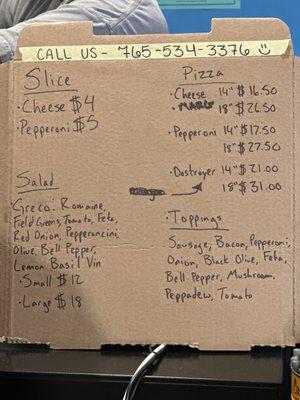 CALL US - 765-534-3376
Slice
· Cheese $4
· Pepperoni $5
Salad
"Greco": Romaine,
Field Greens, Tomato, Feta,
Red Onion, Pepperoncini,
Olive, Bell Pepper,
Lemon Basil Vin
· Small $12
· Large $18
Pizza
· Cheese 14" $16.50
18" $26.50
· Pepperoni 14" $17.50
18" $27.50
· Destroyer 14" $21.00
18" $31.00
· Toppings
Sausage, Bacon, Pepperoni,
Onion, Black Olive, Feta,
Bell Pepper, Mushroom,
Peppadew, Tomato